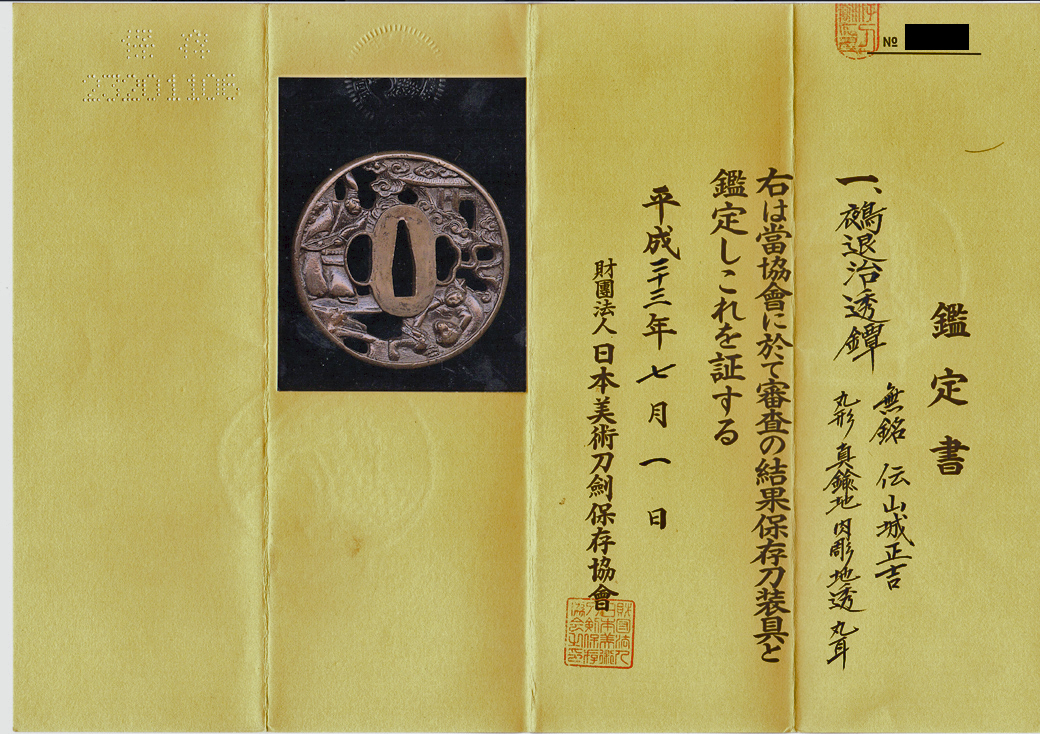 鑑定書
№
一、鵺退治透鐔
無銘 伝山城正吉
丸形 真鍮地 肉彫地透 丸耳
右は當協會に於て審査の結果保存刀装具と
鑑定しこれを証する
平成二十三年七月一日
財團法人 日本美術刀劍保存協會
保存
23201106